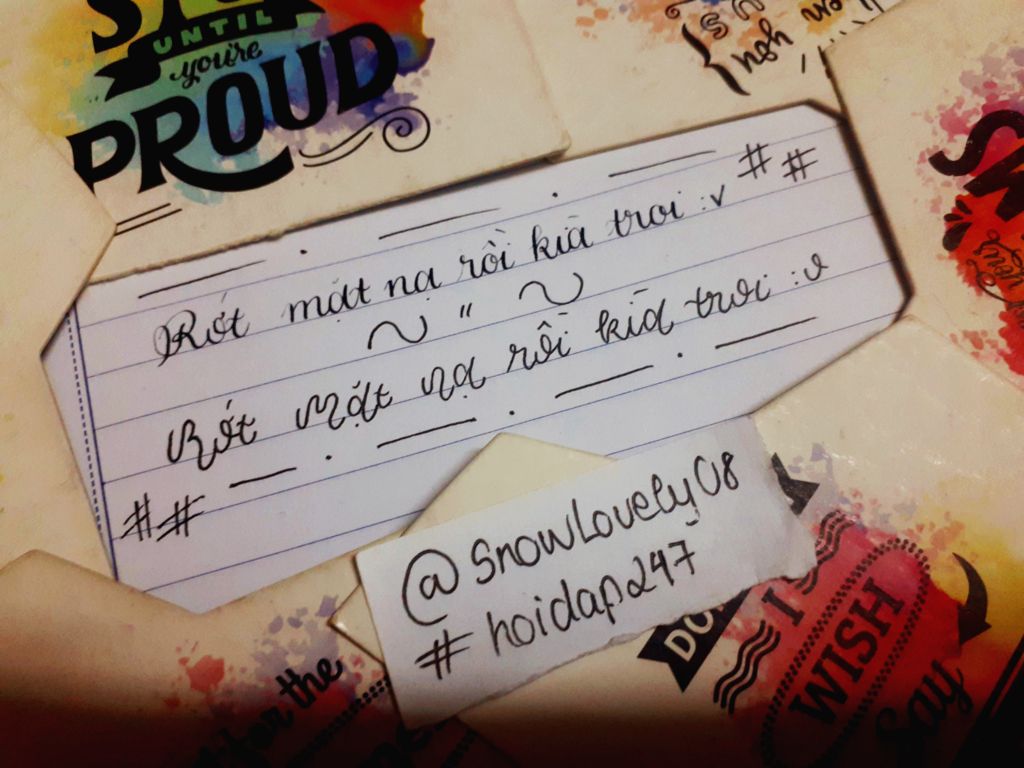 UNTIL
you're
PROUD
# #
Rớt mặt nạ rồi kìa trơi :v
~ " ~
Rớt mặt nạ rồi kìa trơi :v
##
@SnowLovely08
#hoidap247
for the
I
WISH
Say